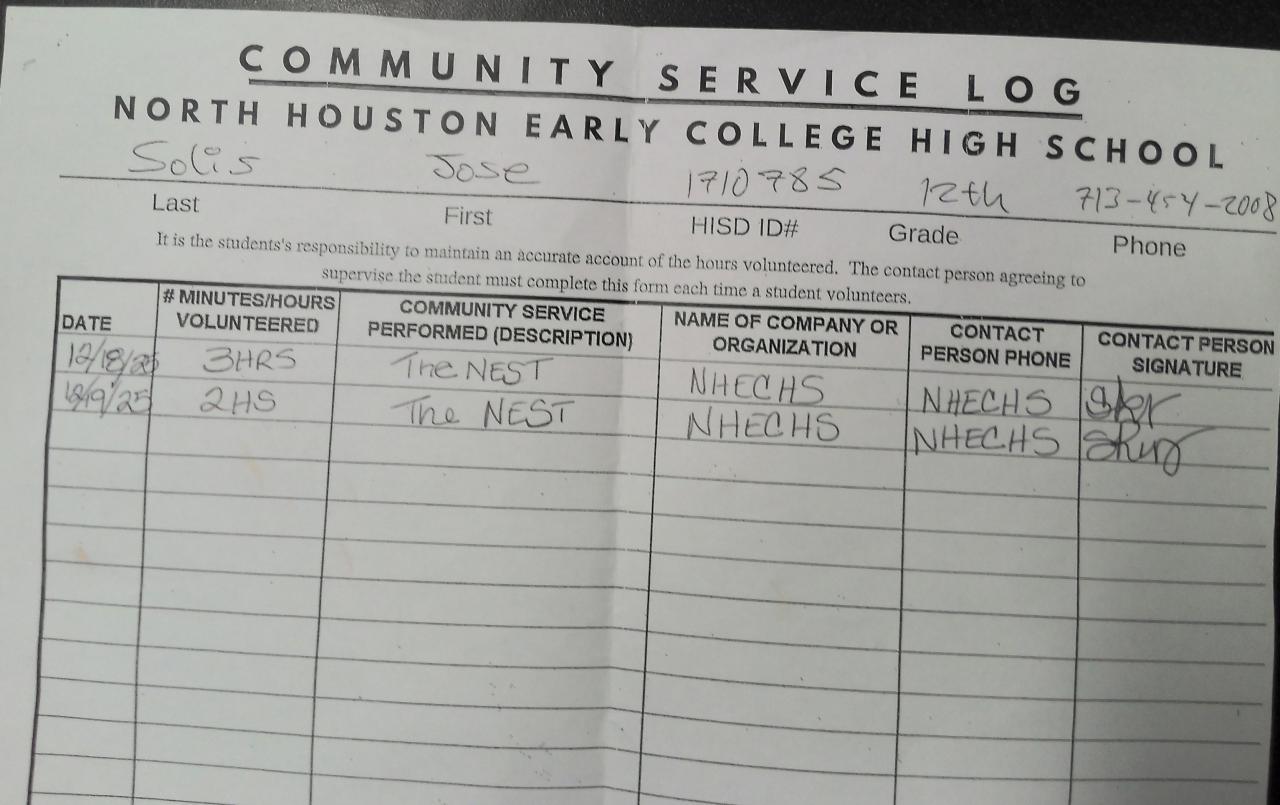 COMMUNITY SERVICE LOG
NORTH HOUSTON EARLY COLLEGE HIGH SCHOOL
Solis Jose 1710785 12th 713-454-2008
Last First HISD ID# Grade Phone
It is the students's responsibility to maintain an accurate account of the hours volunteered. The contact person agreeing to
supervise the student must complete this form each time a student volunteers.
DATE # MINUTES/HOURS VOLUNTEERED COMMUNITY SERVICE PERFORMED (DESCRIPTION) NAME OF COMPANY OR ORGANIZATION CONTACT PERSON PHONE CONTACT PERSON SIGNATURE
12/18/25 3HRS The NEST NHECHS NHECHS
12/19/25 2HS The NEST NHECHS NHECHS